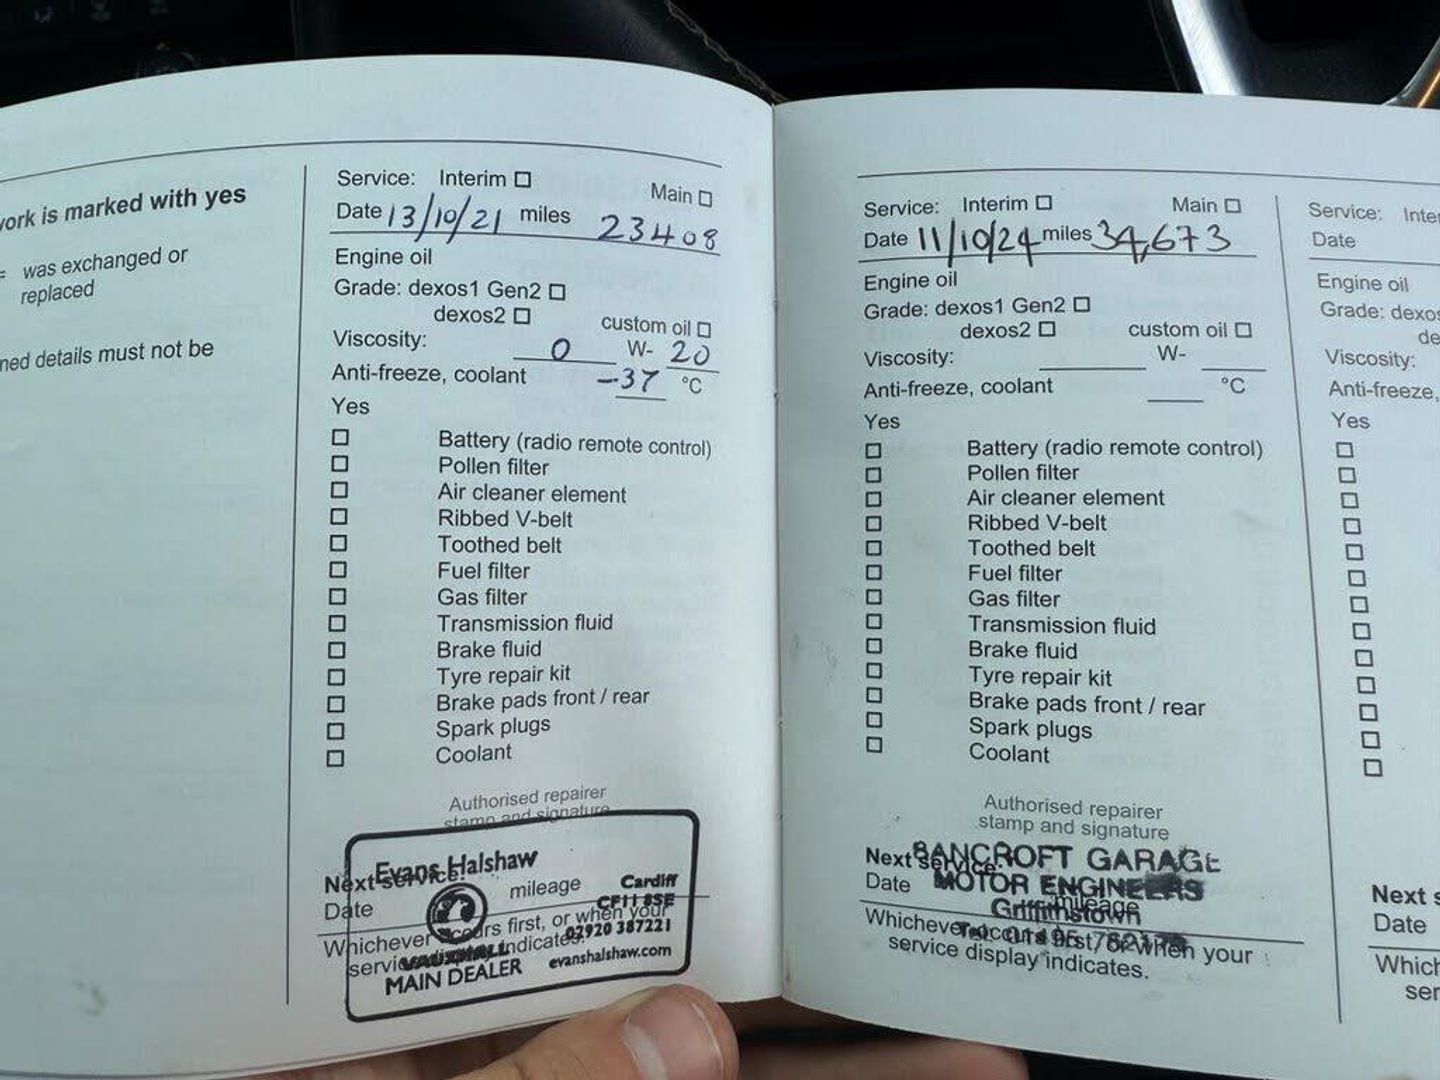 work is marked with yes
= was exchanged or
replaced
ned details must not be
Service: Interim ☐ Main ☐
Date 13/10/21 miles 23408
Engine oil
Grade: dexos1 Gen2 ☐
dexos2 ☐ custom oil ☐
Viscosity: 0 W- 20
Anti-freeze, coolant -37 °C
Yes
☐ Battery (radio remote control)
☐ Pollen filter
☐ Air cleaner element
☐ Ribbed V-belt
☐ Toothed belt
☐ Fuel filter
☐ Gas filter
☐ Transmission fluid
☐ Brake fluid
☐ Tyre repair kit
☐ Brake pads front / rear
☐ Spark plugs
☐ Coolant
Authorised repairer
stamp and signature
Evans Halshaw
Next service:
Date mileage
Cardiff
CF11 8SE
02920 387221
Whichever occurs first, or when your
service display indicates.
VAUXHALL
MAIN DEALER evanshalshaw.com
Service: Interim ☐ Main ☐
Date 11/10/24 miles 34,673
Engine oil
Grade: dexos1 Gen2 ☐
dexos2 ☐ custom oil ☐
Viscosity: W-
Anti-freeze, coolant °C
Yes
☐ Battery (radio remote control)
☐ Pollen filter
☐ Air cleaner element
☐ Ribbed V-belt
☐ Toothed belt
☐ Fuel filter
☐ Gas filter
☐ Transmission fluid
☐ Brake fluid
☐ Tyre repair kit
☐ Brake pads front / rear
☐ Spark plugs
☐ Coolant
Authorised repairer
stamp and signature
BANCROFT GARAGE
Next service:
MOTOR ENGINEERS
Date mileage
Griffithstown
Tel: 01495
Whichever occurs first, or when your
service display indicates.
Service: Inter
Date
Engine oil
Grade: dexos
de
Viscosity:
Anti-freeze,
Yes
☐
☐
☐
☐
☐
☐
☐
☐
☐
☐
☐
☐
☐
Next s
Date
Which
ser